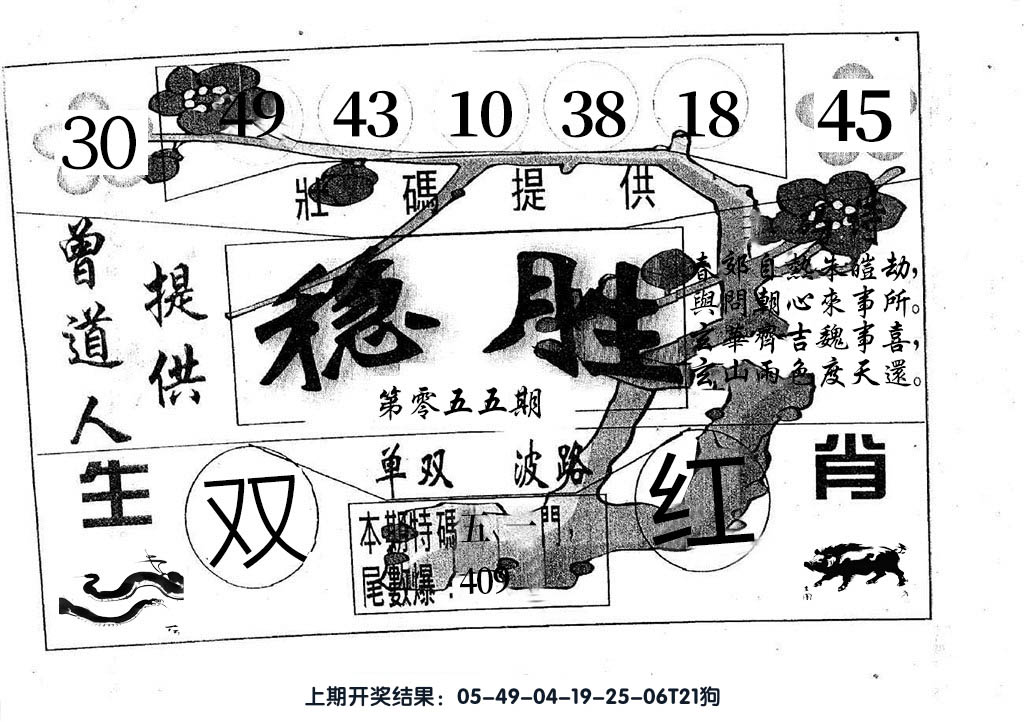 30 49 43 10 38 18 45
壯碼提供
特
曾道人
提供
稳胜
第零五五期
春郊自熱朱暟劫，
與問朝心來事所。
玄華齊吉魏事喜，
玄山雨色度天還。
单双 波路
生
肖
双
红
本期特碼五、一門，
尾數爆：409
上期开奖结果：05-49-04-19-25-06T21狗